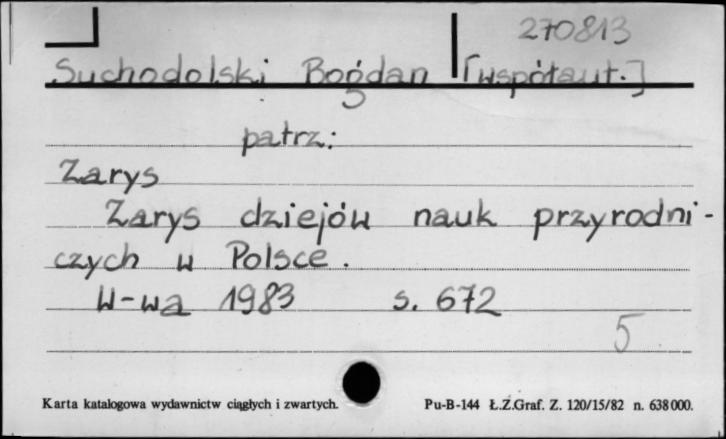 270813
Suchodolski Bogdan [współaut.]
patrz:
Zarys
Zarys dziejów nauk przyrodni-
czych w Polsce.
W-wa 1983 s. 672
5
Karta katalogowa wydawnictw ciągłych i zwartych. Pu-B-144 Ł.Z.Graf. Z. 120/15/82 n. 638000.